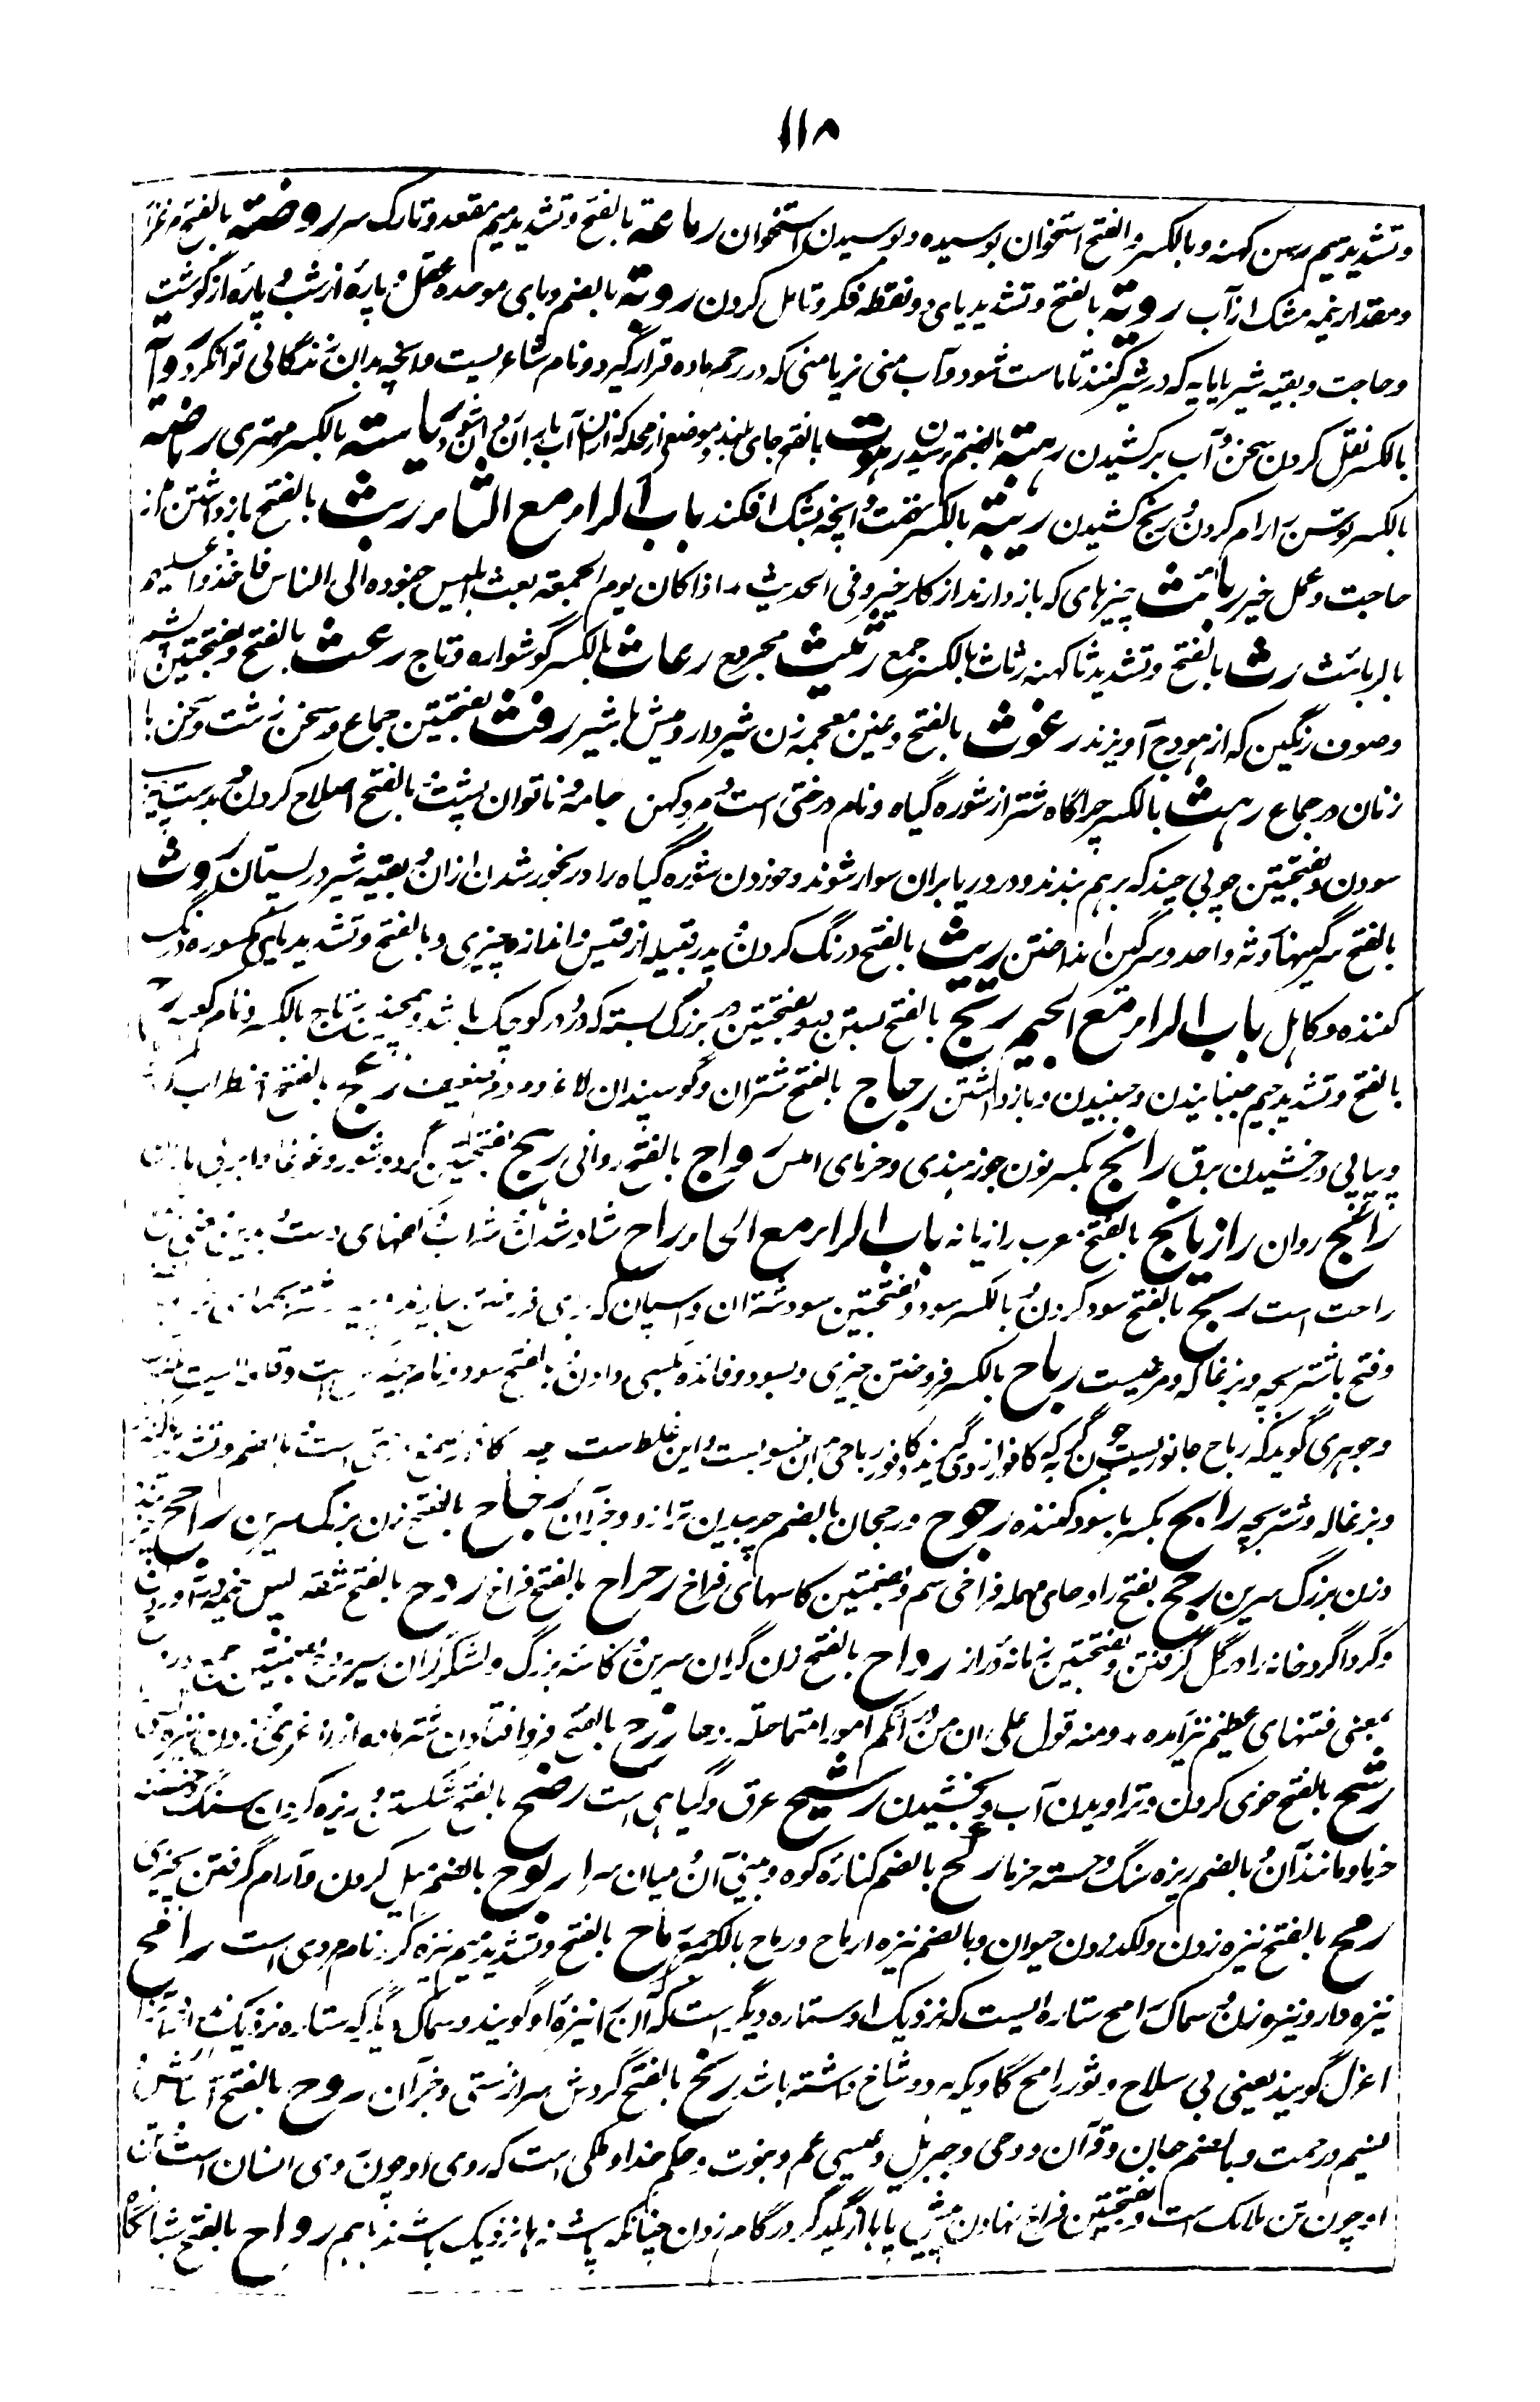 ۱۱۸
وتشدید میم رسن کهنه وبالکسر والفتح استخوان بوسیده وبوسیدن استخوان رماعة بالفتح وتشدید میم مقعد وتارک سر روضة بالفتح مرغزار
ومقدار نیمه مشک از آب رویة بالفتح وتشدید یای دونقطه فکر وتامل کردن روبة بالضم وبای موحده عقل و پارهٔ از شب و پارهٔ از گوشت
وحاجت وبقیه شیر یا مایه که در شیر کنند تا ماست شود وآب منی نر یا منی که در رحم ماده قرار گیرد ونام شاعریست وانچه بدان زندگانی توانکرد روآیة
بالکسر نقل کردن سخن و آب برکشیدن رهبة بالفتح ترسیدن رهوت بالفتح جای بلند وموضعی از محله که ازان آب باران روان شود ریاسة بالکسر مهتری ریاضة
بالکسر توسن را رام کردن و رنج کشیدن ریبة بالکسر تهمت و انچه بشک افکند باب الراء مع الثاء ربث بالفتح بازداشتن از
حاجت وعمل خیر ربائث چیزهای که باز دارند از کار خیر وفی الحدیث اذا کان یوم الجمعة بعث ابلیس جنوده الی الناس فاخذوا علیهم
بالربائث رث بالفتح وتشدید ثا کهنه رثاث بالکسر جمع رثیث مجروح رعاث بالکسر گوشواره وتاج رعث بالفتح وبفتحتین
وصوف رنگین که از هودج آویزند رغوث بالفتح وغین معجمه زن شیردار ومیش با شیر رفث بفتحتین جماع وسخن زشت وسخن با
زنان در جماع رمث بالکسر چراگاه شتر از شوره گیاه ونام درختی است و مرد کهن جامه و ناتوان پشت و بالفتح اصلاح کردن و بدست
سودن وبفتحتین چوبی چند که برهم بندند ودر دریا بران سوار شوند وخوردن شوره گیاه را ورنجور شدن ازان و بقیه شیر در پستان روث
بالفتح سرگینها روثه واحد وسرگین انداختن ریث بالفتح درنگ کردن و پدر قبیله از قیس واندازه چیزی وبالفتح وتشدید یای مکسوره درنگ
کننده وکاهل باب الراء مع الجیم رتج بالفتح بستن در وبفتحتین در بزرگ بسته که درو در کوچک باشد وهمچنین رتاج بالکسر ونام مکه
بالفتح وتشدید جیم جنبانیدن وجنبیدن وبازداشتن رجاج بالفتح شتران وگوسپندان لاغر ومردم ضعیف رعج بالفتح اضطراب
وپیاپی درخشیدن برق رانج بکسر نون جوز هندی وخرمای املس رواج بالفتح روانی رهج بفتحتین گرد وشور وغوغا وابر بی باران
رائج روان رازیانج بالفتح معرب رازیانه باب الراء مع الحاء راح شاد شدن و شراب و کفهای دست
راحت است ربح بالفتح سود کردن و بالکسر سود وبفتحتین سود شتران واسپان که برای فروختن بیارند
وفتح با شتربچه وبزغاله ومرغیست رباح بالکسر فروختن چیزی بسود وفائده کسی دادن و بالفتح سود ونام
وجوهری گوید که رباح جانوریست چون گربه که کافور ازوی گیرند وکافور رباحی بدان منسوبست و این غلط ست چه کافور صمغ درختی است و بالضم وتشدید
وبزغاله وشتربچه رابح بکسر با سودکننده رجوح ورجحان بالضم چربیدن ترازو وجز آن رجاح بالفتح زن بزرگ سرین راجح
وزن بزرگ سرین رحح بفتح را وحای مهمله فراخی سم وبضمتین کاسهای فراخ رحراح بالفتح فراخ ردح بالفتح شقه پس خیمه
وگرداگرد خانه را در گل گرفتن وبفتحتین زمانهٔ دراز رداح بالفتح زن گران سرین و کاسهٔ بزرگ ولشکر گران سیر وبضمتین جمع
بمعنی فتنهای عظیم نیز آمده ومنه قول علی ان من ورائکم امورا متماحلة ردحا رزح بالفتح فروافتادن شتر ماده از لاغری وزدن نیزه
رشح بالفتح خوی کردن وتراویدن آب وبخشیدن رشیح عرق وگیاهی است رضح بالفتح شکستن و ریزه کردن سنگ وخسته
خرما ومانند آن و بالضم ریزه سنگ وخسته خرما رکح بالضم کنارهٔ کوه وبینی آن و میان سرا رکوح بالضم میل کردن وآرام گرفتن بچیزی
رمح بالفتح نیزه زدن ولگد زدن حیوان وبالضم نیزه ارماح ورماح بالکسر جمع رماح بالفتح وتشدید میم نیزه گر ونام مردی است رامح
نیزه دار ونیزه زن و سماک رامح ستاره ایست که نزدیک او ستاره دیگر است که آنرا نیزهٔ او گویند وسماک دیگر که ستاره نزدیکش نیست آنرا
اعزل گویند یعنی بی سلاح وثور رامح گاویکه دو شاخ داشته باشد رنح بالفتح گردش سر از مستی وجز آن روح بالفتح آسایش و
نسیم ورحمت وبالضم جان وقرآن ووحی وجبریل وعیسی عم ونبوت وحکم خدا وملکی است که روی او چون روی انسان است و تن
او چون تن ملائک است وبفتحتین فراخ نهادن پیش پایها از یکدیگر در گام زدن چنانکه پاشنه ها نزدیک باشند باهم رواح بالفتح شبانگاه